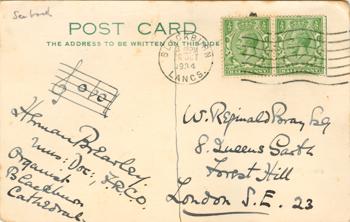 Seaboard
POST CARD
THE ADDRESS TO BE WRITTEN ON THIS SIDE
BLACKBURN
OCT
1934
LANCS.
Herman Brearley
Mus: Doc:, F.R.C.O.
Organist
Blackburn
Cathedral
W. Reginald Bray Esq
8 Queens Garth
Forest Hill
London S.E. 23